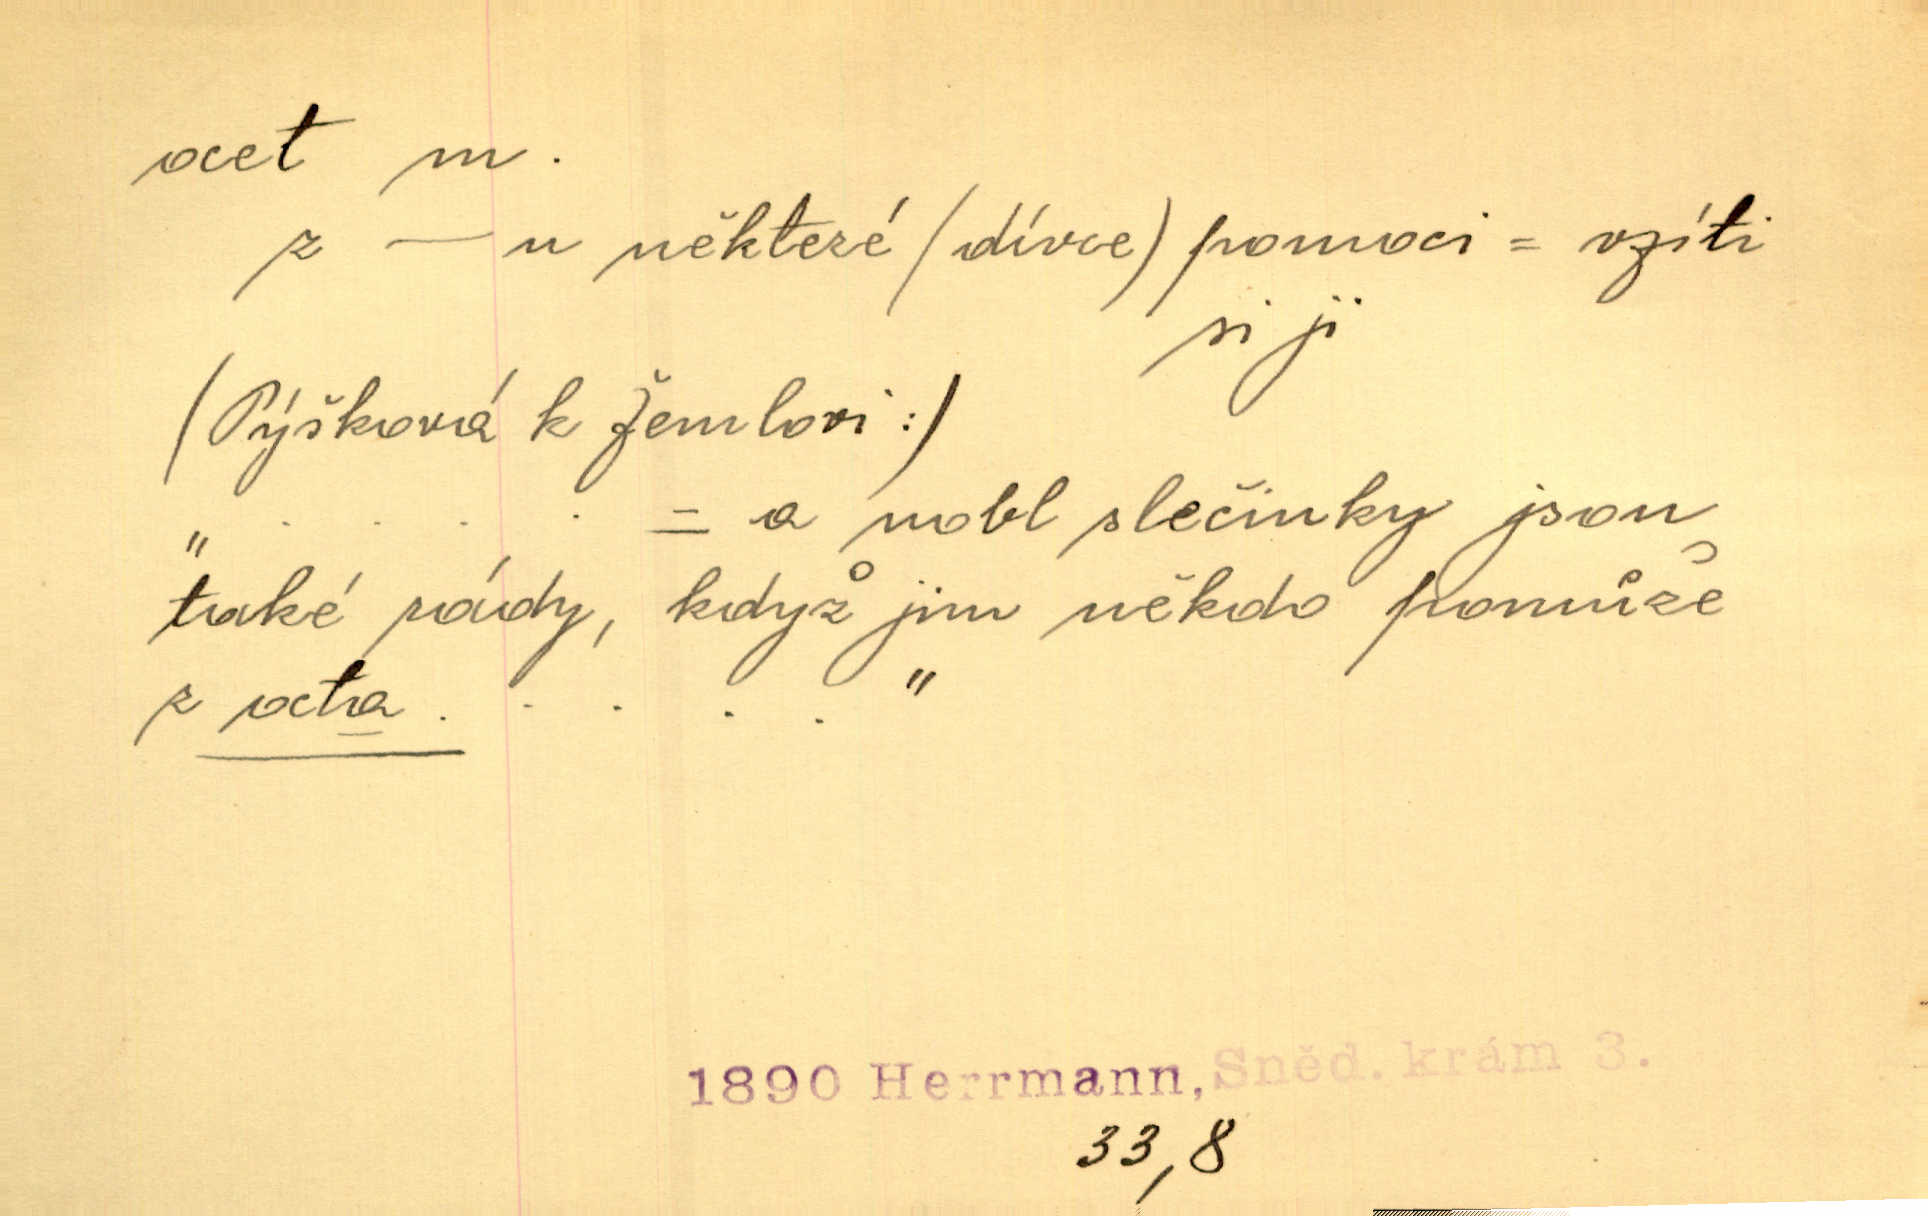 ocet m.
z — u některé (dívce) pomoci = vzíti
si ji
(Pýšková k Žemlovi:)
„ . . . . = a nobl slečinky jsou
také rády, když jim někdo pomůže
z octa . . . . . "
1890 Herrmann, Sněd. krám 3.
33,8